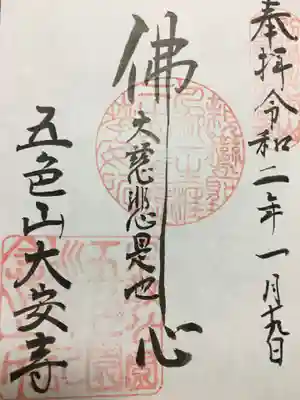 奉拝令和二年一月十九日
佛心
大慈悲是也
五色山大安寺